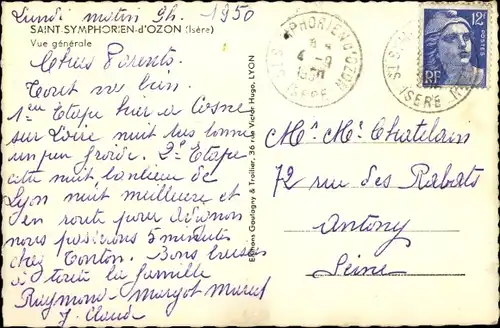 Lundi matin 9h. 1950
SAINT-SYMPHORIEN-d'OZON (Isère)
Vue générale
Chers Parents
Tout va bien.
1ère Etape hier à Cosne
sur Loire nuit très bonne
un peu froide. 2e Etape
cette nuit banlieue de
Lyon nuit meilleure et
en route pour Avignon
nous passerons 5 minutes
chez Tonton. Bons baisers
à toute la famille
Raymond Margot Marcel
J. Claude
Editions Goutagny & Trollier, 36 rue Victor Hugo, LYON
ST SYMPHORIEN D'OZON
4 -9
1950
ISERE
12F
POSTES
RF
ST S
ISERE
Mr Me Chatelain
72 rue des Rabats
Antony
Seine